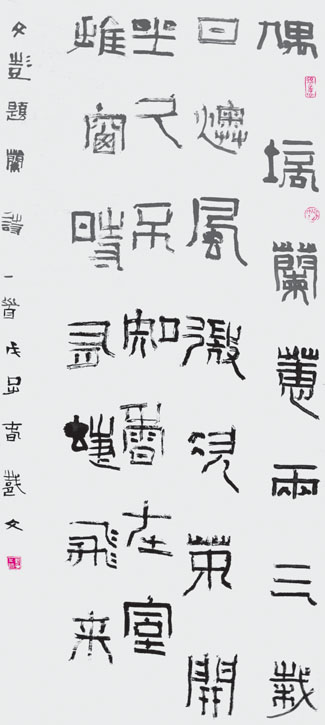 偶培蘭蕙兩三栽
日燠風微次第開
坐久不知香在室
推窗時有蝶飛来
文彭題蘭詩一首戊春文